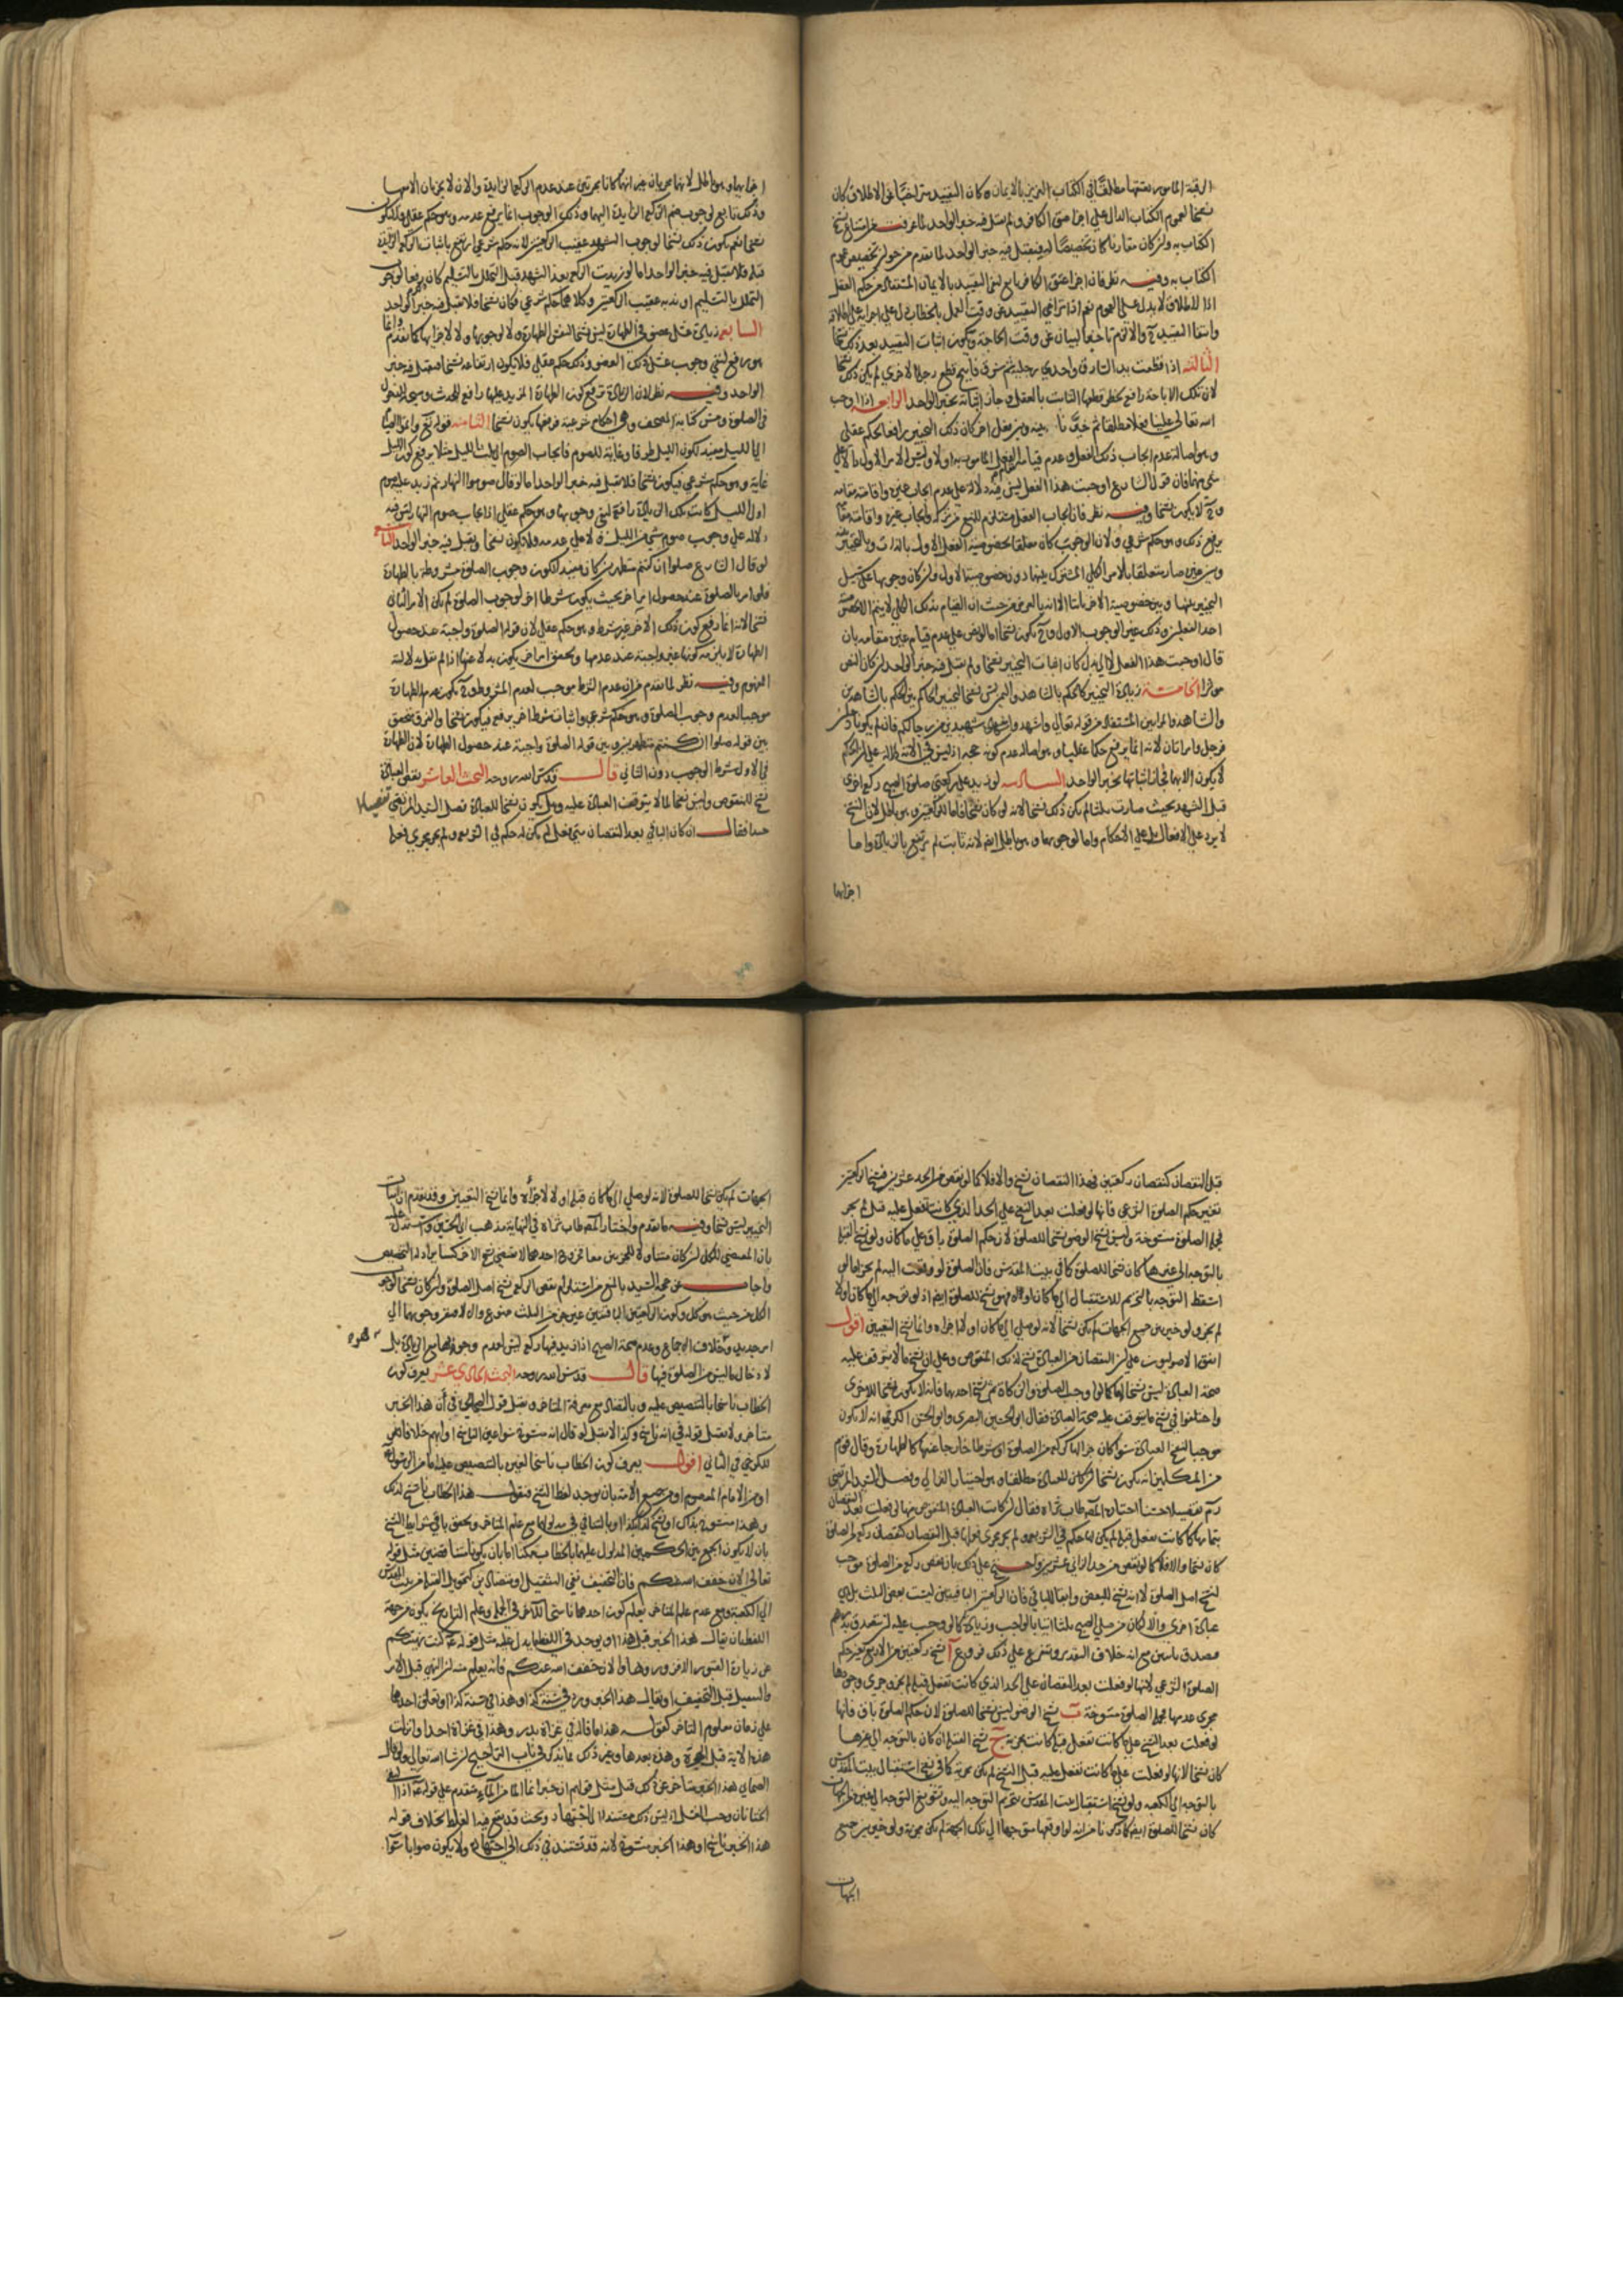 الرقبة المامور بعتقها مطلقا في الكتاب العزيز بالايمان ه كان التقييد متراخيا عن الاطلاق كان
نسخا لعموم الكتاب الدال على اجزا عتق الكافر ولم يقبل فيه خبر الواحد لما عرفت من امتناع نسخ
الكتاب به ولن كان مقارنا كان تخصيصا له فيقبل فيه خبر الواحد لما تقدم من جواز تخصيص عموم
الكتاب به وفيه نظر فان اجزا عتق الكافر تابع لنفي التقييد بالايمان المستفاد من حكم العقل
اذ الاطلاق لا يدل على العموم نعم اذا تراخى التقييد عن وقت العمل بالخطاب دل على
وانتفا التقييد والا لزم تاخير البيان عن وقت الحاجة ويكون اثبات التقييد بعد ذلك نسخا
الثالثة اذا قطعت يد السارق واحدى رجليه ثم سرق فابيح قطع رجله الاخرى لم يكن ذلك نسخا
لان تلك الاباحة رافع لحظر قطعها الثابت بالعقل فجاز اثباته بخبر الواحد الرابعة اذا اوجب
الله تعالى علينا فعلا مطلقا ثم خيرنا بينه وبين فعل اخر كان ذلك التخيير رافعا لحكم عقلي
وهو اصالة عدم ايجاب ذلك الفعل وعدم قيام الفعل المامور به اولا وليس الامر الاول دالا على
شى منهما فان قول الشارع اوجبت هذا الفعل ليس فيه دلالة على عدم ايجاب غيره واقامته مقامه
وح لا يكون نسخا وفيه نظر فان ايجاب الفعل مستلزم للمنع من تركه وايجاب غيره واقامته مقامه
يرفع ذلك وهو حكم شرعي ولان الوجوب كان متعلقا بخصوصية الفعل الاول بالذات وبالتخيير بينه
وبين غيره صار متعلقا بالامر الكلي المشترك بينهما دون خصوصية الاول ولن كان وجوبها على سبيل
التخيير بينها وبين خصوصية الاخر ثابتا الا انه بالعرض من حيث ان القيام بذلك الكلي لا يتم الا
احد الفعلين وذلك غير الوجوب الاول وح يكون نسخا اما لو نص على عدم قيام غيره مقامه بان
قال اوجبت هذا الفعل لا الى بدل كان اثبات التخيير نسخا ولم يقبل فيه خبر الواحد لن كان النص
متواترا الخامسة زيادة التخيير كالحكم بالشاهد واليمين ليس نسخا لتخيير الحاكم بين الحكم بالشاهدين
والشاهد والمراتين المستفاد من قوله تعالى واستشهدوا شهيدين من رجالكم فان لم يكونا رجلين
فرجل وامراتان لانه انما يرفع حكما عقليا وهو اصالة عدم كونه حجة اذ ليس في الاية دلالة على ان الحكم
لا يكون الا بهما فجاز اثباتها بخبر الواحد السادسة لو زيد على ركعتي صلوة الصبح ركعة اخرى
قبل التشهد بحيث صارت ثلثا لم يكن ذلك نسخا لانه لو كان نسخا فاما للركعتين وهو باطل لان النسخ
لا يرد على الافعال بل على الاحكام واما لوجوبهما وهو باطل ايضا لانه ثابت لم يرتفع بالزيادة واما
اجزايهما
اجزايهما وهو باطل لانهما يجزيان غير انهما كانا يجزيان عند عدم الركعة الزايدة والان لا يجزيان الا معها
وذلك تابع لوجوب ضم الركعة الزايدة اليهما وذلك الوجوب انما يرفع عدمه وهو حكم عقلي فلا يكون
نسخا نعم يكون ذلك نسخا لوجوب التشهد عقيب الركعتين لانه حكم شرعي ارتفع باثبات الركعة الزايدة
قبله فلا يقبل فيه خبر الواحد اما لو زيدت الركعة بعد التشهد قبل التحلل بالتسليم كان رفعا لوجوب
التحلل بالتسليم او ندبه عقيب الركعتين وكلاهما حكم شرعي فكان نسخا فلا يقبل فيه خبر الواحد
السابعة زيادة غسل عضو في الطهارة ليس نسخا لنفس الطهارة ولا لوجوبها ولا لاجزايها كما تقدم وانما
هو رفع لنفي وجوب غسل ذلك العضو وذلك حكم عقلي فلا يكون ارتفاعه نسخا فيقبل فيه خبر
الواحد وفيه نظر لان الزيادة ترفع كون الطهارة المزيد عليها رافع للحدث ومبيحة للدخول
في الصلوة ومس كتابة المصحف وهي احكام شرعية فرفعها يكون نسخا الثامنة قوله تع واتموا الصيام
الى الليل مفيد لكون الليل طرفا وغاية للصوم فايجاب الصوم الى ثلث الليل مثلا يرفع كون الليل
غاية وهو حكم شرعي فيكون نسخا فلا يقبل فيه خبر الواحد اما لو قال صوموا النهار ثم زيد على صوم
اول الليل كانت تلك الزيادة رافعة لنفي وجوبها وهو حكم عقلي اذ ايجاب صوم النهار ليس فيه
دلالة على وجوب صوم شي من الليل ولا على عدمه فلا يكون نسخا ويقبل فيه خبر الواحد التاسعة
لو قال الشارع صلوا ان كنتم متطهرين كان مفيدا لكون وجوب الصلوة مشروطة بالطهارة
فلو امر بالصلوة عند حصول امر اخر بحيث يكون شرطا اخر لوجوب الصلوة لم يكن الامر الثاني
نسخا لانه انما رفع كون ذلك الاخر غير شرط وهو حكم عقلي لان قوله الصلوة واجبة عند حصول
الطهارة لا يلزم منه كونها غير واجبة عند عدمها وتحقق امر اخر يكون بدلا عنها اذا لم نقل بدلالة
المفهوم وفيه نظر لما تقدم من ان عدم الشرط موجب لعدم المشروط وح يكون عدم الطهارة
موجبا لعدم وجوب الصلوة وهو حكم شرعي واثبات شرط اخر يرفعه فيكون نسخا والفرق متحقق
بين قوله صلوا ان كنتم متطهرين وبين قوله الصلوة واجبة عند حصول الطهارة لان الطهارة
في الاول شرط الوجوب دون الثاني قال قدس الله روحه البحث العاشر نقص العبادة
نسخ للمنقوص وليس نسخا لما لا يتوقف العبادة عليه وهل يكون نسخا للعبادة فصل السيد المرتضى تفصيلا
حسنا فقال ان كان الباقي بعد النقصان متى فعل لم يكن له حكم في الشريعة ولم يجر مجرى فعله
قبل النقصان كنقصان ركعتين فهذا النقصان نسخ والا فلا كما لو نقص من الحد عشرين فنسخ الركعتين
تغيير حكم الصلوة الشرعي فانها لو فعلت بعد النسخ على الحد الذي كانت تفعل عليه قبل لم يجز
فجملة الصلوة منسوخة وليس نسخ الوضو نسخا للصلوة لان حكم الصلوة باق على ما كان ولو نسخ القبلة
بالتوجه الى غيرها كان نسخا للصلوة كما في بيت المقدس فان الصلوة لو وقعت اليه لم يجز اما لو
اسقط التوجه بالتحريم للاستقبال الى ما كان اولا فهو نسخ للصلوة ايضا اذ لو توجه الى ما كان اولا
لم يجز ولو خير بين جميع الجهات لم يكن نسخا لانه لو صلى الى ما كان اولا اجزاه وانما نسخ التعيين اقول
اتفق الاصوليون على لن النقصان من العبادة نسخ لذلك المنقوص وعلى ان نسخ ما لا يتوقف عليه
صحة العبادة ليس نسخا لها كما لو اوجب الصلوة والزكاة ثم نسخ احدهما فانه لا يكون نسخا للاخرى
واختلفوا في نسخ ما يتوقف عليه صحة العبادة فقال ابو الحسين البصري وابو الحسن الكرخي انه لا يكون
موجبا لنسخ العبادة سوا كان جزا لها كركعة من الصلوة او شرطا خارجا عنها كالطهارة وقال قوم
من المتكلمين انه يكون نسخا لن كان للعبادة مطلقا وهو اختيار الغزالي وفصل السيد المرتضى
ره تفصيلا حسنا اختاره المص طاب ثراه فقال لن كانت العبادة المنقوص منها لو فعلت بعد النقصان
بتمامها كما كانت تفعل قبله لم يكن لها حكم في الشريعة ولم يجر مجرى فعلها قبل النقصان كنقصان ركعة من الصلوة
كان نسخا والا فلا كما لو نقص من حد الزاني عشرين واحتج على ذلك بان نقص ركعة من الصلوة موجب
لنسخ اصل الصلوة لا انه نسخ للبعض وابقا للباقي فان الركعتين الباقيتين ليست بعض الثلث بل هي
عبادة اخرى والا لكان من صلى الصبح ثلثا اتيا بالواجب وزيادة كما لو وجب عليه لن يتصدق بدرهم
فتصدق باثنين مع انه خلاف التقدير ويتفرع على ذلك فروع آ نسخ ركعتين من الاربع تغيير حكم
الصلوة الشرعي لانها لو فعلت بعد النقصان على الحد الذي كانت تفعل قبله لم يجز وجرى وجودها
مجرى عدمها فجملة الصلوة منسوخة ب نسخ الوضو ليس نسخا للصلوة لان حكم الصلوة باق فانها
لو فعلت بعد النسخ على ما كانت تفعل قبله كانت مجزية ج نسخ القبلة ان كان بالتوجه الى غيرها
كان نسخا لانها لو فعلت على ما كانت تفعل عليه قبل النسخ لم يكن مجزية كما في نسخ استقبال بيت المقدس
بالتوجه الى الكعبة ولو نسخ استقبال بيت المقدس بتحريم التوجه اليه وتسويغ التوجه الى غيره من الجهات
كان نسخا للصلوة ايضا كما ذكرنا من انه لو اوقعها متوجها الى تلك الجهة لم يكن مجزية ولو خير بين جميع
الجهات
الجهات لم يكن نسخا للصلوة لانه لو صلى الى ما كان قبله اولا لاجزاه وانما نسخ التعيين وقد تقدم ان اثبات
التخيير ليس نسخا وفيه ما تقدم واختار المص طاب ثراه في النهاية مذهب ابي الحسين واستدل
بان المقتضي للكل لن كان متناولا للجزين معا فخروج احدهما لا يقتضي نسخ الاخر كسائر ادلة التخصيص
واجاب عن حجة السيد بالمنع من استلزام نقص الركعة نسخ اصل الصلوة ولن كان نسخا لوجوب
الكل من حيث هو كل وكون الركعتين الباقيتين غير جزء من الثلث ممنوع والا لافتقر وجوبهما الى
امر جديد وهو خلاف الاجماع وعدم صحة الصبح اذا زيد فيها ركعة ليس لعدم وجوبهما مع الزيادة بل
لادخال ما ليس من الصلوة فيها قال قدس الله روحه البحث الحادي عشر يعرف كون
الخطاب ناسخا بالتنصيص عليه وبالتضاد مع معرفة المتاخر ويقبل قول الصحابي في أن هذا الخبر
متاخر ولا يقبل قوله في انه ناسخ وكذا لا يقبل لو قال انه منسوخ سوا عين الناسخ او ابهم خلافا
للكرخي في الثاني اقول يعرف كون الخطاب ناسخا لغيره بالتنصيص عليه اما من الرسول
او من الامام المعصوم او من جميع الامة بان يوجد لفظ النسخ فيقول هذا الخطاب ناسخ لذلك
وهذا منسوخ بذاك او نسخ كذا بكذا او بالتنافي في مدلولهما مع علم المتاخر وتحقق باقي شرايط النسخ
بان لا يكون الجمع بين الحكمين المدلول عليهما بالخطاب ممكنا اما بان يكونا متناقضين مثل قوله
تعالى الان خفف الله عنكم فان التخفيف نفي التثقيل او متضادين كتحويل القبلة من بيت المقدس
الى الكعبة ومع عدم علم المتاخر يعلم كون احدهما ناسخا للاخر في الجملة وعلم التاريخ يكون من جهة
اللفظ بان يقال هذا الخبر قبل هذا او يوجد في اللفظ ما يدل عليه مثل قوله ع كنت نهيتكم
عن زيارة القبور الا فزوروها والان خفف الله عنكم فانه يعلم منه لن النهي قبل الامر
والتثقيل قبل التخفيف او يقال هذا الخبر ورد في سنة كذا وهذا في سنة كذا او يعلق احدهما
على زمان معلوم التاخر كقوله هذا ما قاله في غزاة بدر وهذا في غزاة احد او نزلت
هذه الاية قبل الهجرة وهذه بعدها وغير ذلك مما يذكر في باب التراجيح لن شا الله تعالى ولو قال
الصحابي هذا الخبر متاخر عن ذلك قبل مثل قولهم ان خبر انما الماء من الماء متقدم على قوله ع اذا التقى
الختانان وجب الغسل اذ ليس ذلك مستندا الى الاجتهاد وبحيث قد يقع فيه الغلط بخلاف قوله
هذا الخبر ناسخ او هذا الخبر منسوخ لانه قد يستند في ذلك الى اجتهاده ولا يكون صوابا سوا